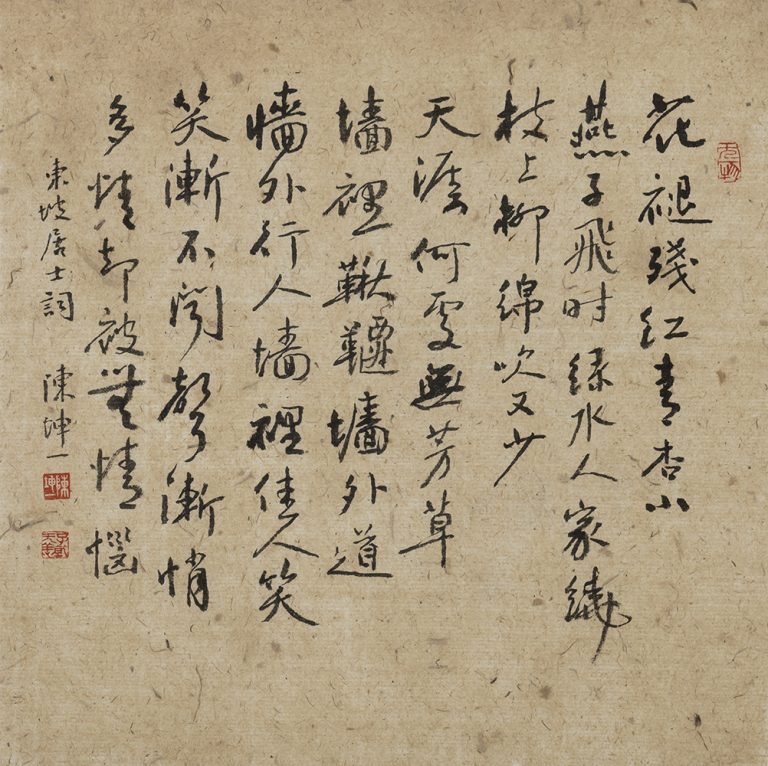 花褪殘紅青杏小
燕子飛时綠水人家繞
枝上柳綿吹又少
天涯何處無芳草
墻裡鞦韆墻外道
墻外行人墻裡佳人笑
笑漸不聞聲漸悄
多情却被無情惱
東坡居士詞 陳坤一